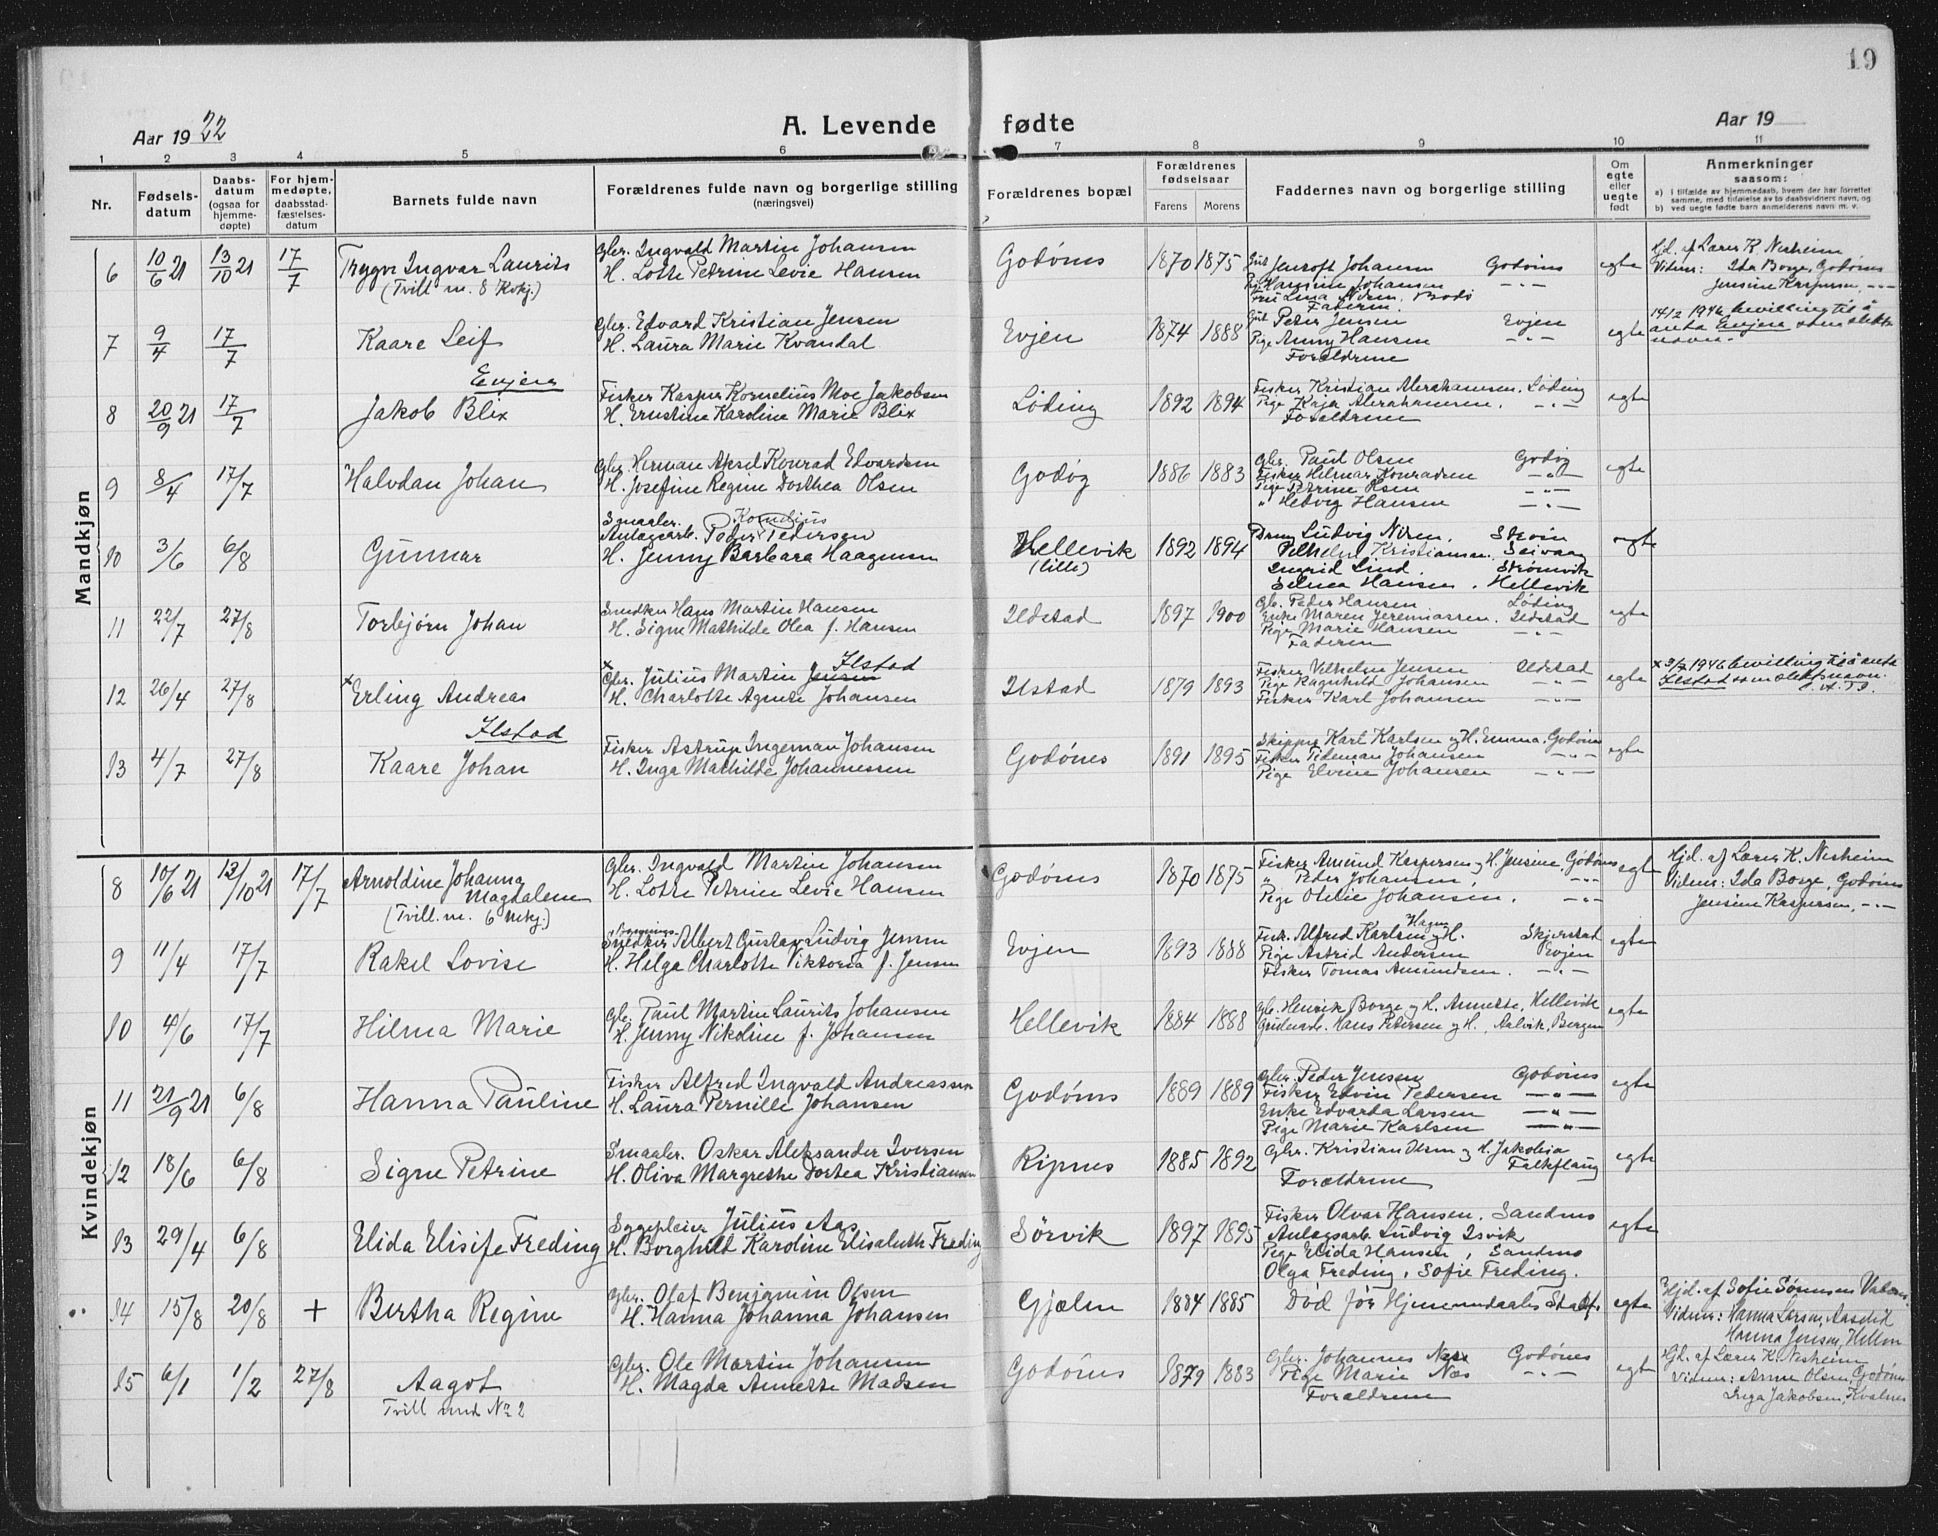 19
Aar 1922
A. Levende fødte
Aar 19
1 2 3 4 5 6 7 8 9 10 11
Nr.
Fødsels-datum
Daabs-datum (ogsaa for hjemme-døpte)
For hjem-medøpte, daabsstad-fæstelses-datum
Barnets fulde navn
Forældrenes fulde navn og borgerlige stilling (næringsvei)
Forældrenes bopæl
Forældrenes fødselsaar
Farens Morens
Faddernes navn og borgerlige stilling
Om egte eller uegte født
Anmerkninger saasom:
a) i tilfælde av hjemmedaab, hvem der har forrettet samme, med tilføielse av to daabsvidners navn, og
b) ved uegte fødte barn anmelderens navn m. v.
Mandkjøn
6 10/6 21 13/10 21 17/7 Trygve Ingvar Laurits
(Tvill. m. 8 Kvkj.)
Gbr. Ingvald Martin Johansen
H. Lotte Petrine Levie Hansen
Godønes 1870 1875
Gut Jentoft Johansen Godønes
Pi Hansine Johansen -"-
Fru Lina Niren, Bodø
Faderen
egte
Hjd. af Lærer K. Nesheim
Vidner: Ida Borge, Godønes
Jensine Kaspersen, -"-
7 9/4 17/7 Kaare Leif
Evjen
Gbr. Edvard Kristian Jensen
H. Laura Marie Kvandal
Evjen 1874 1888
Gut Peter Jensen Evjen
Pige Anny Hansen -"-
Forældrene
egte
14/2 1946 bevilling til å
anta Evjen som slekts
navn.
8 20/9 21 17/7 Jakob Blix
Fisker Kasper Kornelius Moe Jakobsen
H. Ernstine Karoline Marie Blix
Løding 1892 1894
Fisker Kristian Abrahamsen, Løding
Pige Kaja Abrahamsen, -"-
Forældrene
egte
9 8/4 17/7 Halvdan Johan
Gbr. Herman Aksel Konrad Edvardsen
H. Josefine Regine Dorthea Olsen
Godøy 1886 1883
Gbr. Paul Olsen Godøy
Fisker Hilmar Konradsen -"-
Pige Petrine Olsen -"-
" Hedvig Hansen -"-
egte
10 3/6 6/8 Gunnar
Smaabr. Kornelius
Anlægsarb. Peder Pedersen
H. Jenny Barbara Haagensen
Hellevik
(lille)
1892 1894
Ludvig Niren,
Vilhelm Kristiansen, Seivaag
Ingrid Lind, Strømvik
Selma Hansen, Hellevik
egte
11 22/7 27/8 Torbjørn Johan
Snedker Hans Martin Hansen
H. Signe Mathilde Olea f. Hansen
Ildstad 1897 1900
Gb. Peder Hansen Løding
Enke Maren Jeremiassen, Ildstad
Pige Marie Hansen -"-
Faderen
egte
12 26/4 27/8 × Erling Andreas
Ilstad
× Ilstad
Gbr. Julius Martin Jensen
H. Charlotte Agnete Johansen
Ilstad 1879 1893
Fisker Vilhelm Jensen Ildstad
Pige Ragnhild Johansen -"-
Fisker Karl Johansen -"-
egte
× 3/2 1946 bevilling til å anta
Ilstad som slektsnavn.
13 4/7 27/8 Kaare Johan
Fisker Astrup Ingeman Johansen
H. Inga Mathilde Johannessen
Godønes 1891 1895
Skipper Karl Karlsen og H. Emma, Godønes
Fisker Tideman Johansen -"-
Pige Elvine Johansen -"-
egte
Kvindekjøn
8 10/6 21 13/10 21 17/7 Arnoldine Johanna
Magdalene
(Tvill. m. 6 Mkj.)
Gbr. Ingvald Martin Johansen
H. Lotte Petrine Levie Hansen
Godønes 1870 1875
Fisker Amund Kaspersen og H. Jensine, Godønes
" Peder Johansen, -"-
Pige Otelie Johansen, -"-
egte
Hjd. af Lærer K. Nesheim
Vidner: Ida Borge, Godønes
Jensine Kaspersen, -"-
9 11/4 17/7 Rakel Lovise
Snedker Albert Gustav Ludvig Jensen
H. Helga Charlotte Viktoria f. Jensen
Evjen 1893 1888
Fisk. Alfred Karlsen og H. Hagny Skjerstad
Pige Astrid Andersen Evjen
Fisker Tomas Amundsen. -"-
egte
10 4/6 17/7 Hilma Marie
Gb. Paul Martin Laurits Johansen
H. Jenny Nikoline f. Johansen
Hellevik 1884 1888
Gb. Henrik Borge og H. Annette, Hellevik
Hans Petersen og H., Aalvik, Bergen
egte
11 21/9 21 6/8 Hanna Pauline
Fisker Alfred Ingvald Andreassen
H. Laura Pernille Johansen
Godønes 1889 1889
Gbr. Peder Jensen Godønes
Fisker Edvin Pedersen -"-
Enke Edvarda Larsen -"-
Pige Marie Karlsen -"-
egte
12 18/6 6/8 Signe Petrine
Smaabr. Oskar Aleksander Iversen
H. Oliva Margrethe Dortea Kristiansen
Ripnes 1885 1892
Gbr. Kristian Olsen og H. Jakobia
Falkflaug
Forældrene
egte
13 29/4 6/8 Elida Elisife Freding
Sygepleier Julius Aas
H. Borghild Karoline Elisabeth Freding
Sörvik 1897 1895
Fisker Olvar Hansen, Sandnes
Anlægsarb. Ludvig Isvik
Pige Elida Hansen, Sandnes
Olga Freding, Sofie Freding.
egte
14 15/8 20/8 + Bertha Regine
Gbr. Olaf Benjamin Olsen
H. Hanna Johanna Johansen
Gjælen 1884 1885
Død før Hjemmedaabs Stadf.
egte
Hjd. af Sofie Sørensen
Vidner: Hanna Larsen,
Hanna Jensen,
15 6/1 1/2 27/8 Aagot
Tvill. med No 2
Gbr. Ole Martin Johansen
H. Magda Annette Madsen
Godønes 1879 1883
Gbr. Johannes Næs Godønes
Pige Marie Næs -"-
Forældrene
egte
Hjd. af Lærer K. Nesheim
Vidner: Anna Olsen, Godønes
Inga Jakobsen, Kvalnes